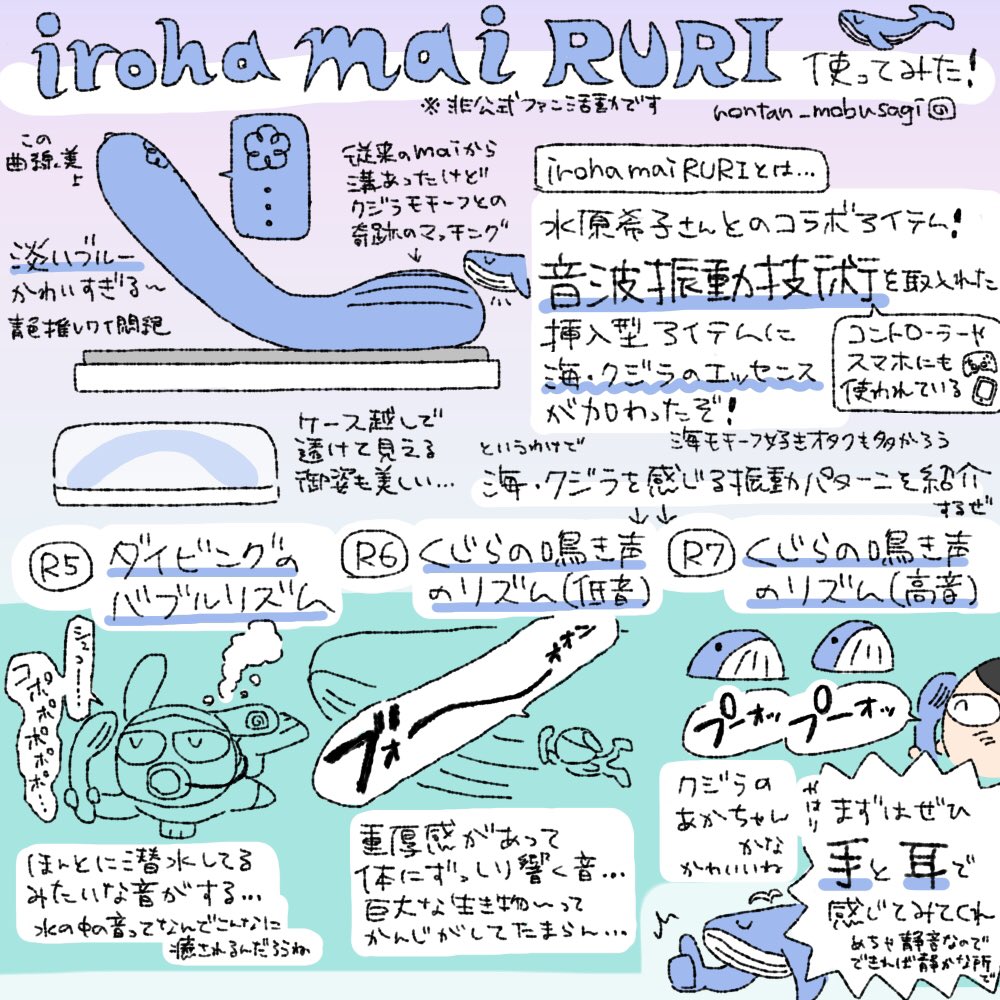 iroha mai RURI 使ってみた！
※非公式ファン活動です
nontan_mobusagi
この
曲線美
よ
淡いブルー
かわいすぎる〜
青色推しワイ悶絶
従来のmaiから
溝あったけど
クジラモチーフとの
奇跡のマッチング
iroha mai RURIとは…
水原希子さんとのコラボアイテム！
音波振動技術を取入れた
挿入型アイテムに
海・クジラのエッセンス
が加わったぞ！
コントローラーや
スマホにも
使われている
ケース越しで
透けて見える
御姿も美しい…
海モチーフ好きオタクも多かろう
というわけで
海・クジラを感じる振動パターンを紹介
するぜ
R5 ダイビングの
バブルリズム
シュコー……
コポポポポポ…
ほんとに潜水してる
みたいな音がする…
水の中の音ってなんでこんなに
癒されるんだろうね
R6 くじらの鳴き声
のリズム(低音)
ブォーオオン
重厚感があって
体にずっしり響く音…
巨大な生き物〜って
かんじがしてたまらん…
R7 くじらの鳴き声
のリズム(高音)
プーオッ プーオッ
クジラの
あかちゃん
かな
かわいいね
やはり
まずはぜひ
手と耳で
感じてみてくれ
めちゃ静音なので
できれば静かな所で